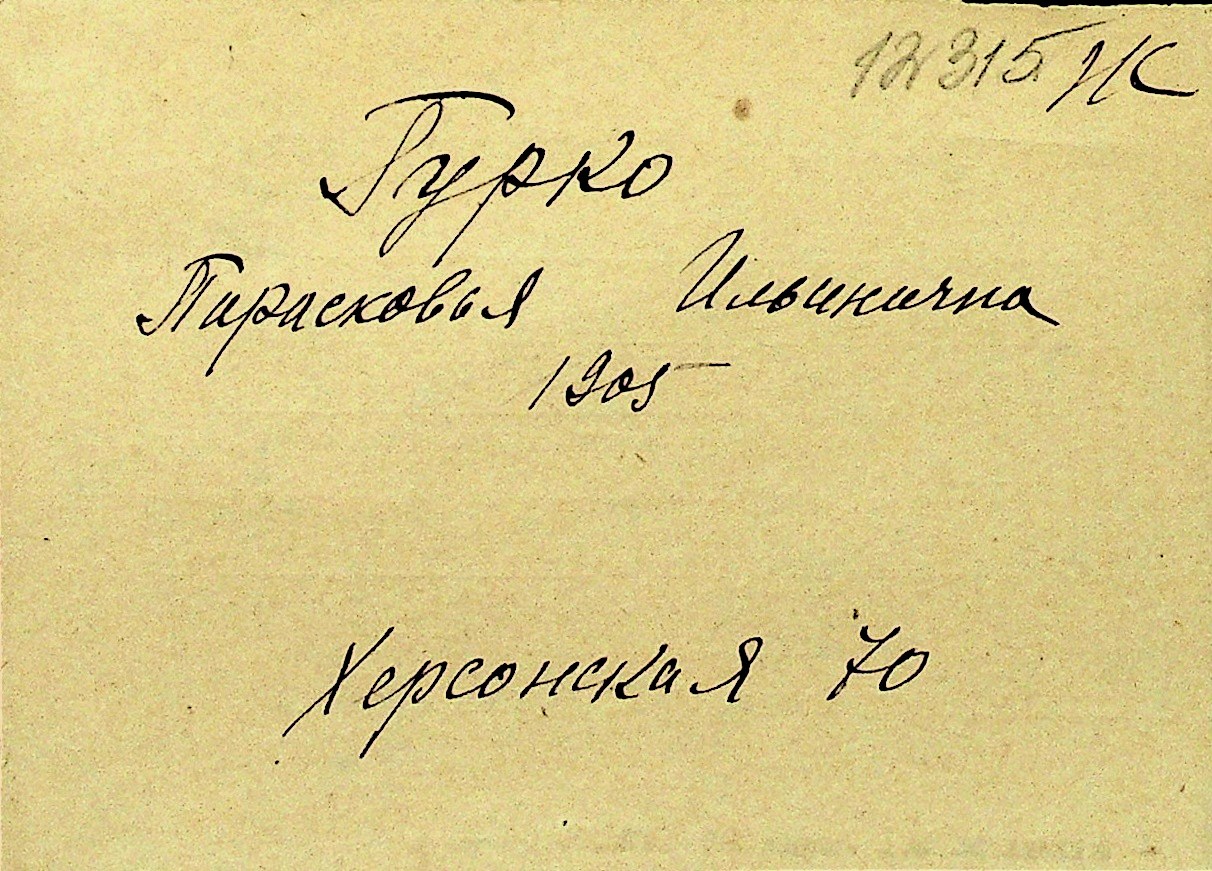 12315 Ж
Гурко
Парасковья Ильинична
1905
Херсонская 70